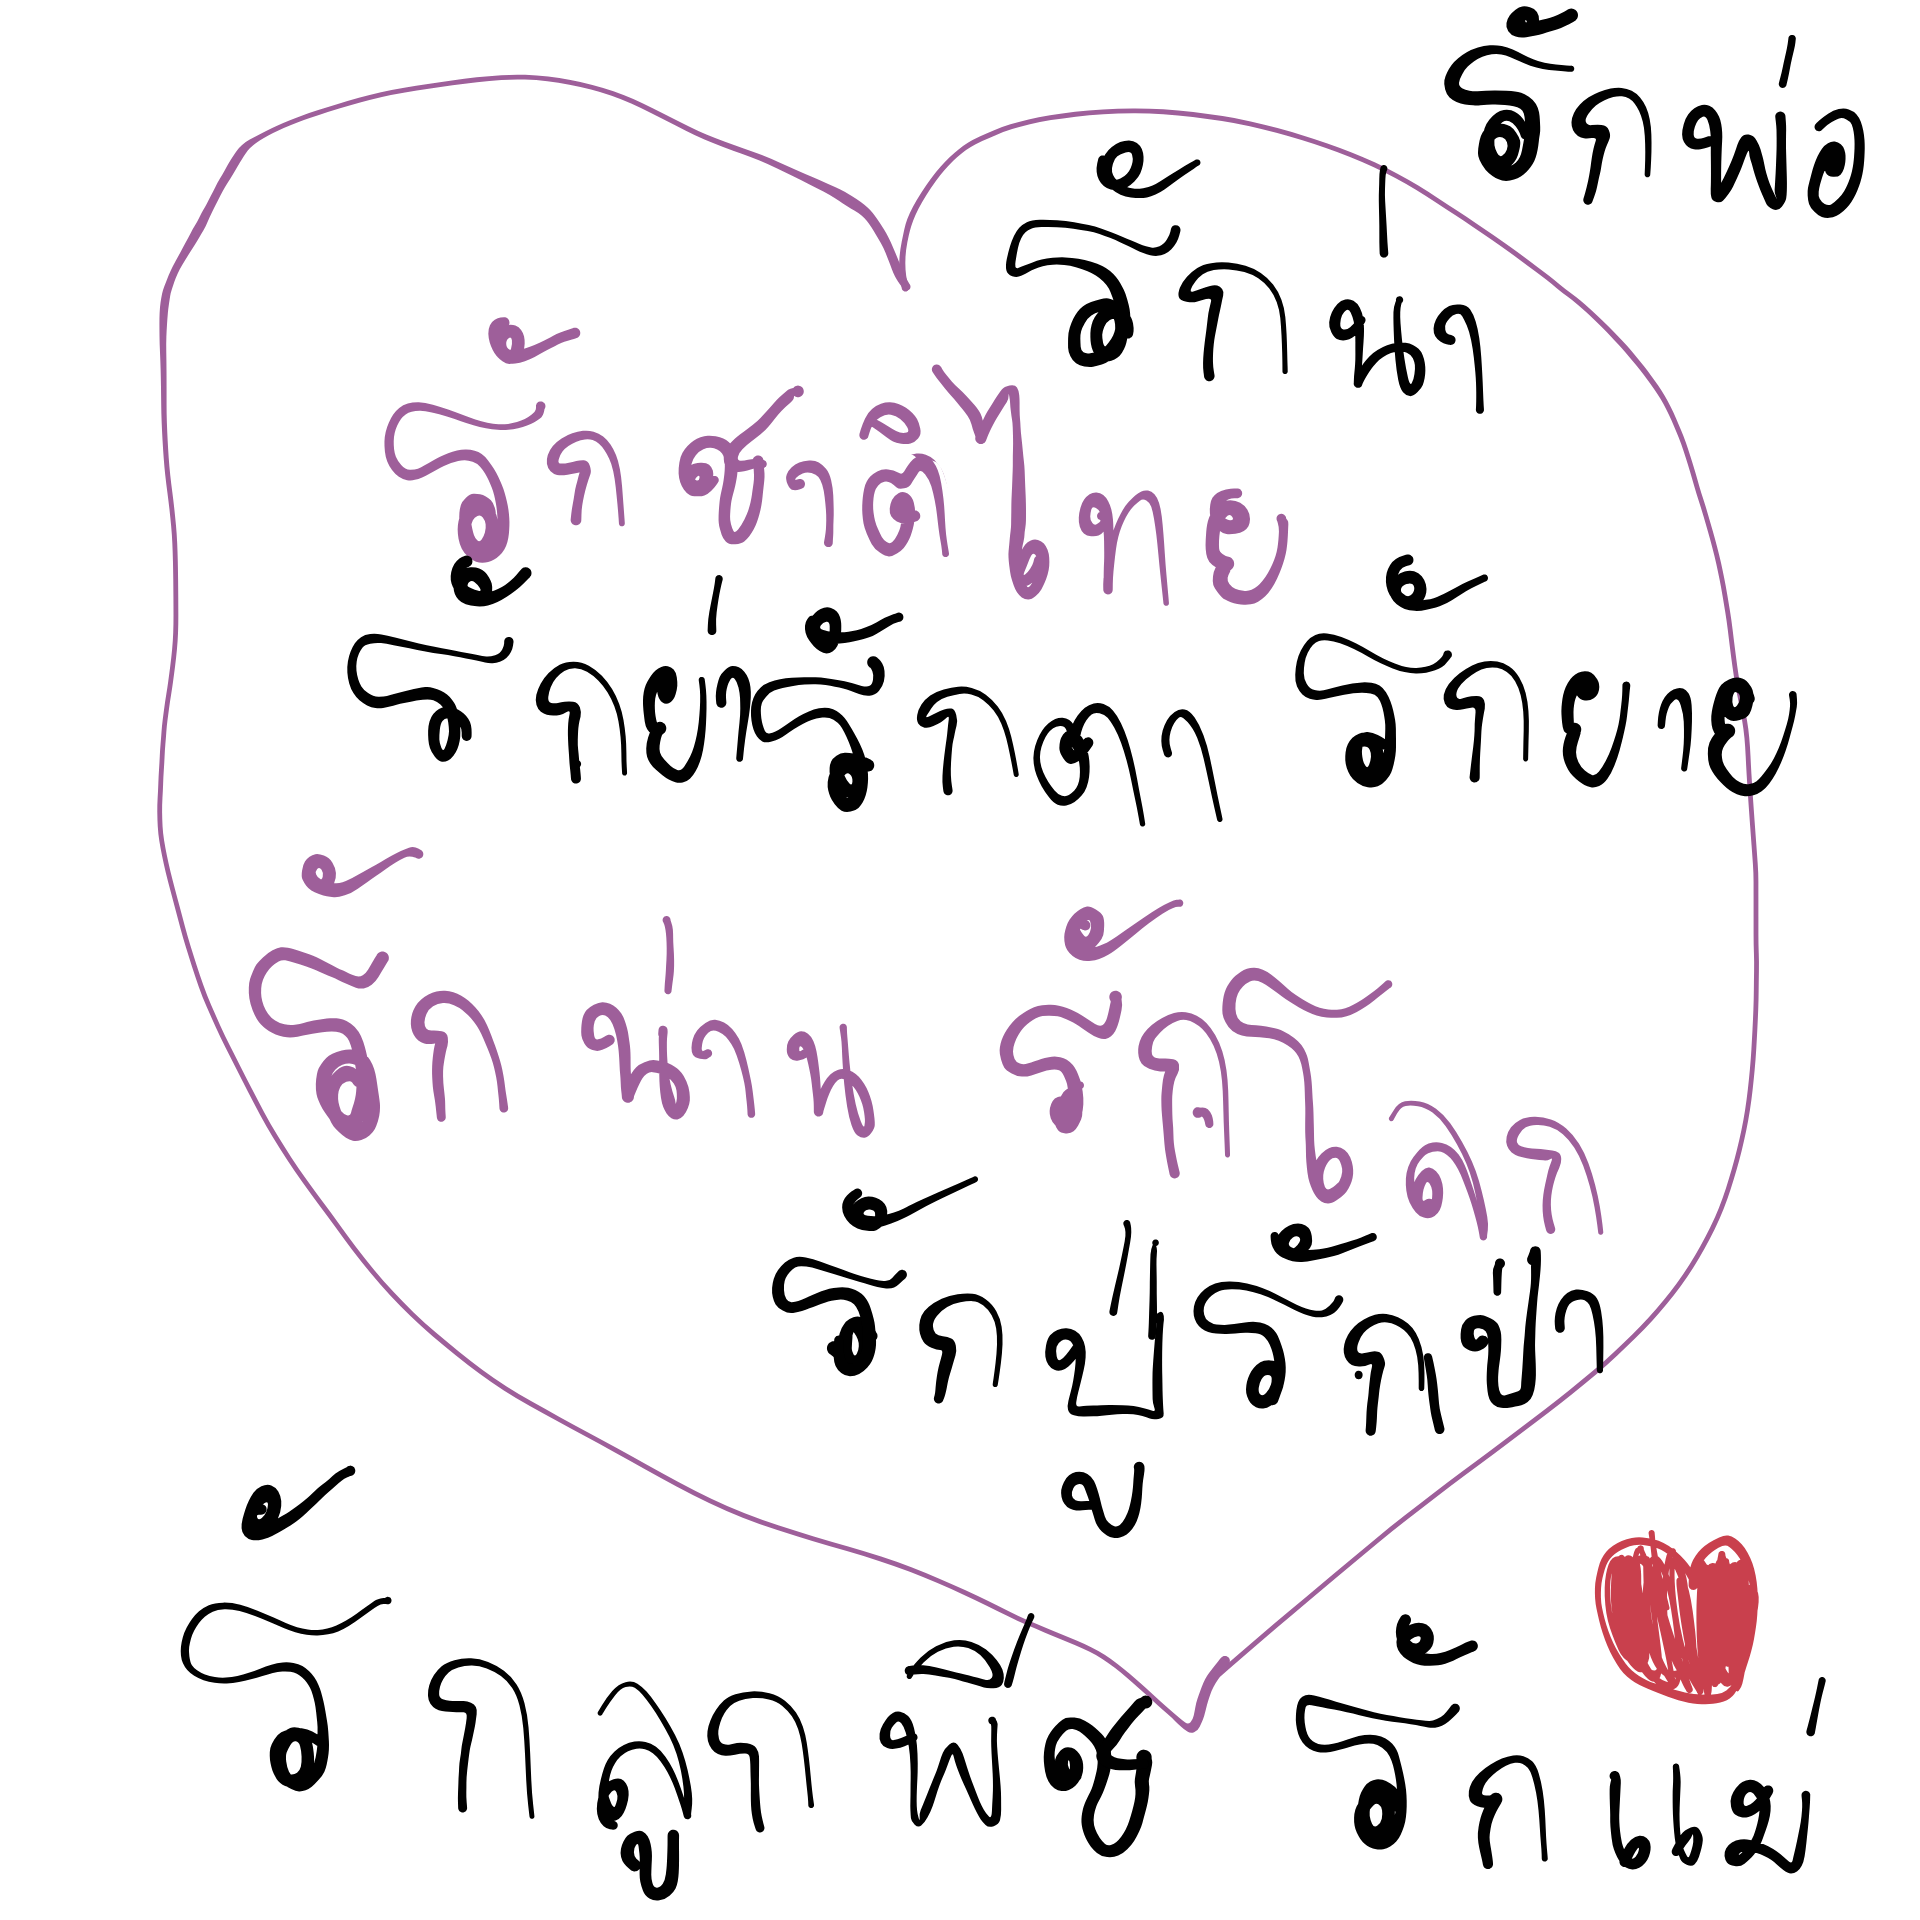 รักพ่อ
รักน่า
รักชาติไทย
รักย่ารักตา รักยาย
รักน่าน รักโลก
รักปู่ รักป่า
รักลูกพีช
รักแม่